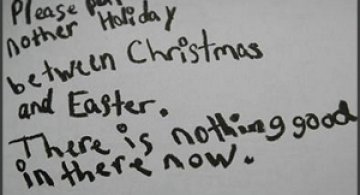 Please
nother Holiday
between Christmas
and Easter.
There is nothing good
in there now.